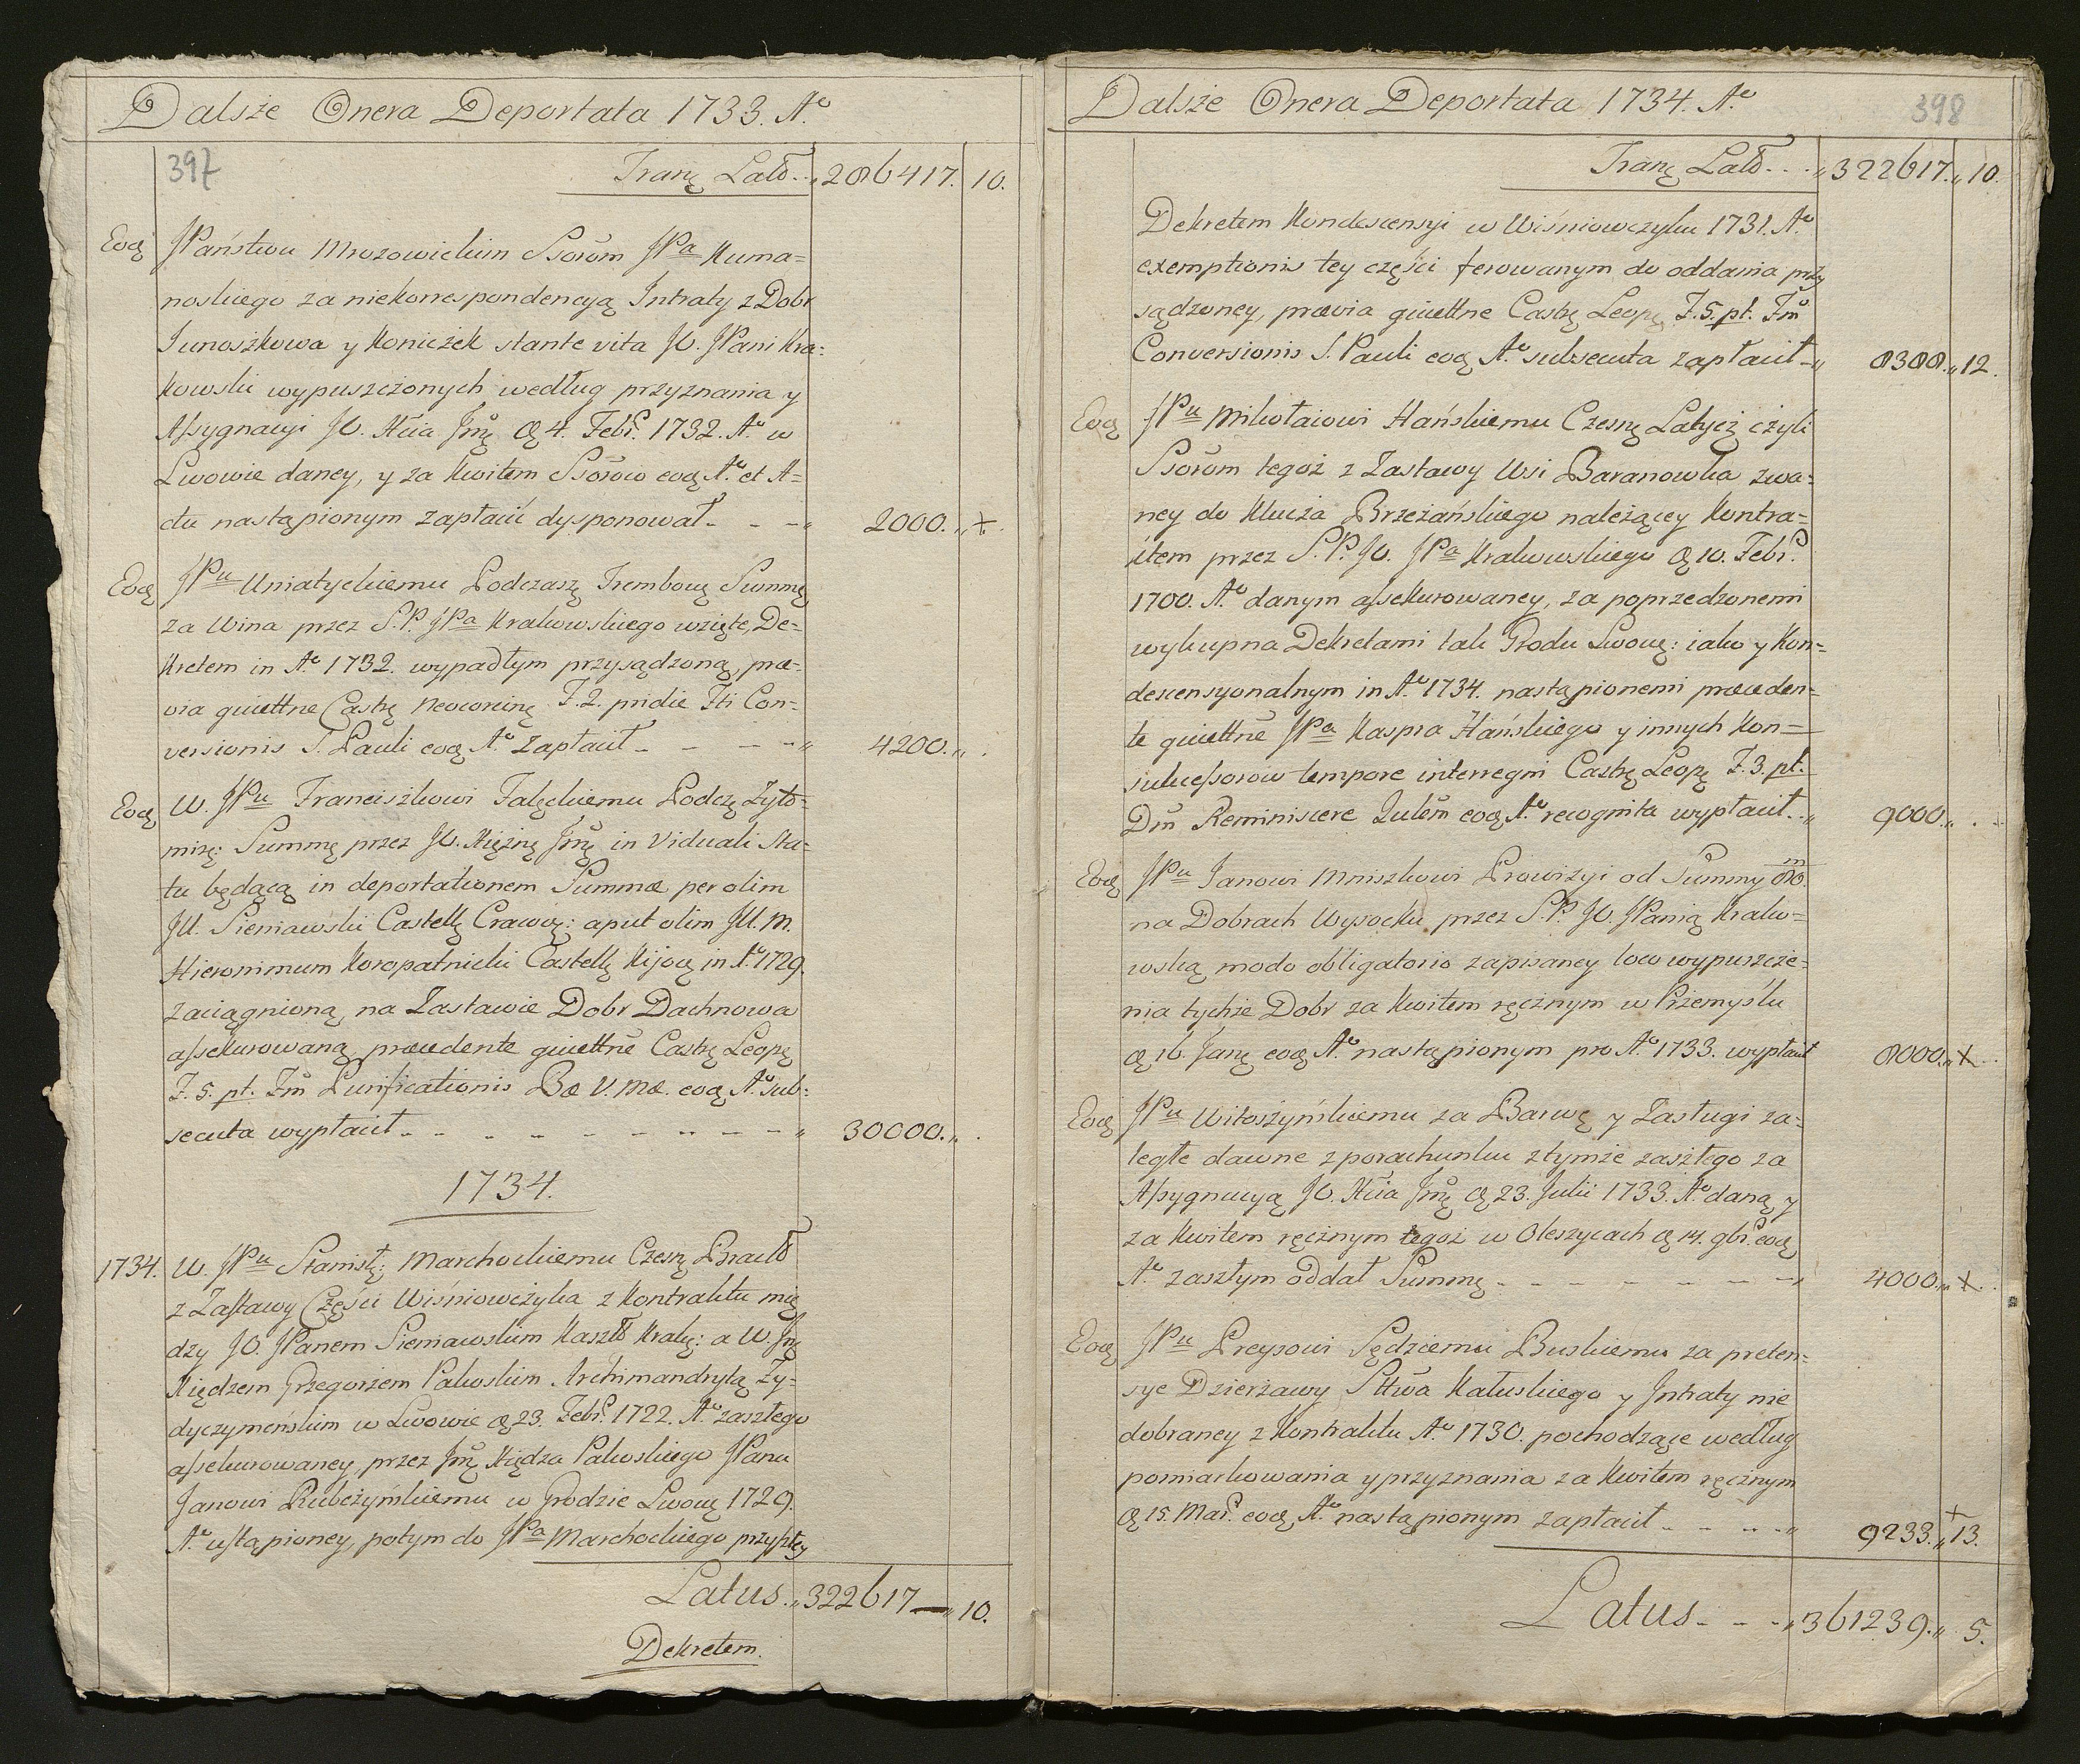 Dalsże Onera Deportata 1733. Aᵒ
397
Tranę Latꝰ. . „ 286417. 10.
Eoq̨ JPaństwu Mrozowickim Ssorom̃ JPa Kuma=
noskiego za niekorrespondencyą Intraty z Dobr
Junoszkowa y Konieżek stante vita JO. JPani Kra=
kowski wypuszcżonych według przyznania y
Assygnacyi JO. Xcia Jm̃ę ą 4. Febr. 1732. Aᵒ w
Lwowie daney, y za Kwitem Ssorow eoą Aᵒ et A=
ctu nastąpionym zapłacić dysponował - - - „ 2000. „ +.
Eoq̨ JPu Uniatyckiemu Podczasz̨ Trembow̨ Summę
za Wina przez S.P. JPa Krakowskiego wzięte, De=
kretem in Aᵒ 1732. wypadłym przysądzoną, præ=
via quiettne Castr̨ Neoconiń̨ F. 2. pridie Fti Con=
versionis S. Pauli eoą Aᵒ zapłacił - - - - „ 4200. „ .
Eoq̨ W. JPu Franciszkowi Falęckiemu Podcz̨ Żyto=
mirs̨: Summę przez JO. Xiężnę Jm̃ę in Viduali Sta=
tu będącą in deportationem Summæ per olim
Jll. Sieniawski Castell̨ Cracov̨: aput olim Jll. M.
Hieronimum Koropatnicki Castell̨ Kijov̨ in Aᵒ 1729.
zaciągnioną, na Zastawie Dobr Dachnowa
assekurowaną, præcedente quiettnẽ Castr̨ Leop̨
F. 5. pt. Fm̃ Purificationis Bæ V. Mæ. eoą Aᵒ sub=
secuta wypłacił - - - - - - - - - „ 30000. „ .
1734.
1734. W. JPu Stanisł̨: Marchockiemu Czesn̨ Bracłꝰ
z Zastawy Części Wiśniowcżyka z Kontraktu mię
dzy JO. JPanem Sieniawskim Kaszt̃ Krak̨: a W. Jm̃
Xiędzem Grzegorżem Pakoskim Archimandrytą Ży=
dyczymeńskim w Lwowie ą 23. Febr. 1722. Aᵒ zaszłego
assekurowaney, przez Jm̃ Xiędza Pakoskiego JPanu
Janowi Rubcżyńskiemu w Grodzie Lwow̨ 1729.
Aᵒ ustąpioney, potym do JPa Marchockiego przyszłey
Latus. „ 322617 — „ 10.
Dekretem.
Dalsże Onera Deportata 1734. Aᵒ
398
Tranę Latꝰ. . . „ 322617. „ 10.
Dekretem Kondescensyi w Wiśniowczyku 1731. Aᵒ
exemptionis tey części ferowanym do oddania przy
sądzoney, prævia quiettne Castr̨ Leop̨ F. 5. pt. Fm̃
Conversionis S. Pauli eoą Aᵒ subsecuta zapłacił - „ 8388. „ 12.
Eoq̨ JPu Mikołaiowi Hańskiemu Czesn̨ Latycż̨ cżyli
Ssorom̃ tegoż z Zastawy Wsi Baranowka zwa=
ney do Klucża Brzeżańskiego należącey Kontra=
ktem przez S.P. JO. JPa Krakowskiego ą 10. Febr.
1700. Aᵒ danym assekurowaney, za poprzedzonemi
wykupna Dekretami tak Grodu Lwow̨: iako y Kon=
descensyonalnym in Aᵒ 1734. nastąpionemi præceden=
te quiettnẽ JPa Kaspra Hańskiego y innych Kon=
sukcessorow tempore interregni Castr̨ Leop̨ F. 3. pt.
Dm̃ Reminiscere Qulem̃ eoą Aᵒ recognita wypłacił . „ 9000. „ .
Eoq̨ JPu Janowi Mniszkowi Prowizyi od Summy 80. m
na Dobrach Wysocku przez S.P. JO. JPanią Krako=
wską modo obligatorio zapisaney loco wypuszcże=
nia tychże Dobr za Kwitem ręcżnym w Prżemyślu
ą 16. Janę eoą Aᵒ nastąpionym pro Aᵒ 1733. wypłacił 8000. „ +.
Eoq̨ JPu Witoszyńskiemu za Barwę y Zasługi za=
ległe dawne z porachunku z tymże zaszłego za
Assygnacyą JO. Xcia Jm̃ę ą 23. Julii 1733. Aᵒ daną y
za Kwitem ręcżnym tegoż w Oleszycach ą 14. 9br. eoą
Aᵒ zaszłym oddał Summę - - - - - - - - „ 4000. „ +.
Eoq̨ JPu Preysowi Sędziemu Buskiemu za preten=
sye Dzierżawy Sttwa Kałuskiego y Intraty nie
dobraney z Kontraktu Aᵒ 1730. pochodzące według
pomiarkowania y przyznania za Kwitem ręcżnym
ą 15. Mar. eoą Aᵒ nastąpionym zapłacił - - - - „ 9233. „ 13. +
Latus - - - „ 361239. „ 5.